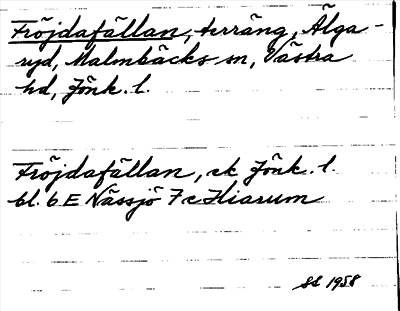 Fröjdafällan, terräng, Älga-
ryd, Malmbäcks sn, Västra
hd, Jönk. l.
Fröjdafällan, ek Jönk. l.
bl. 6 E Nässjö 7 c Hiarum
SS 1958